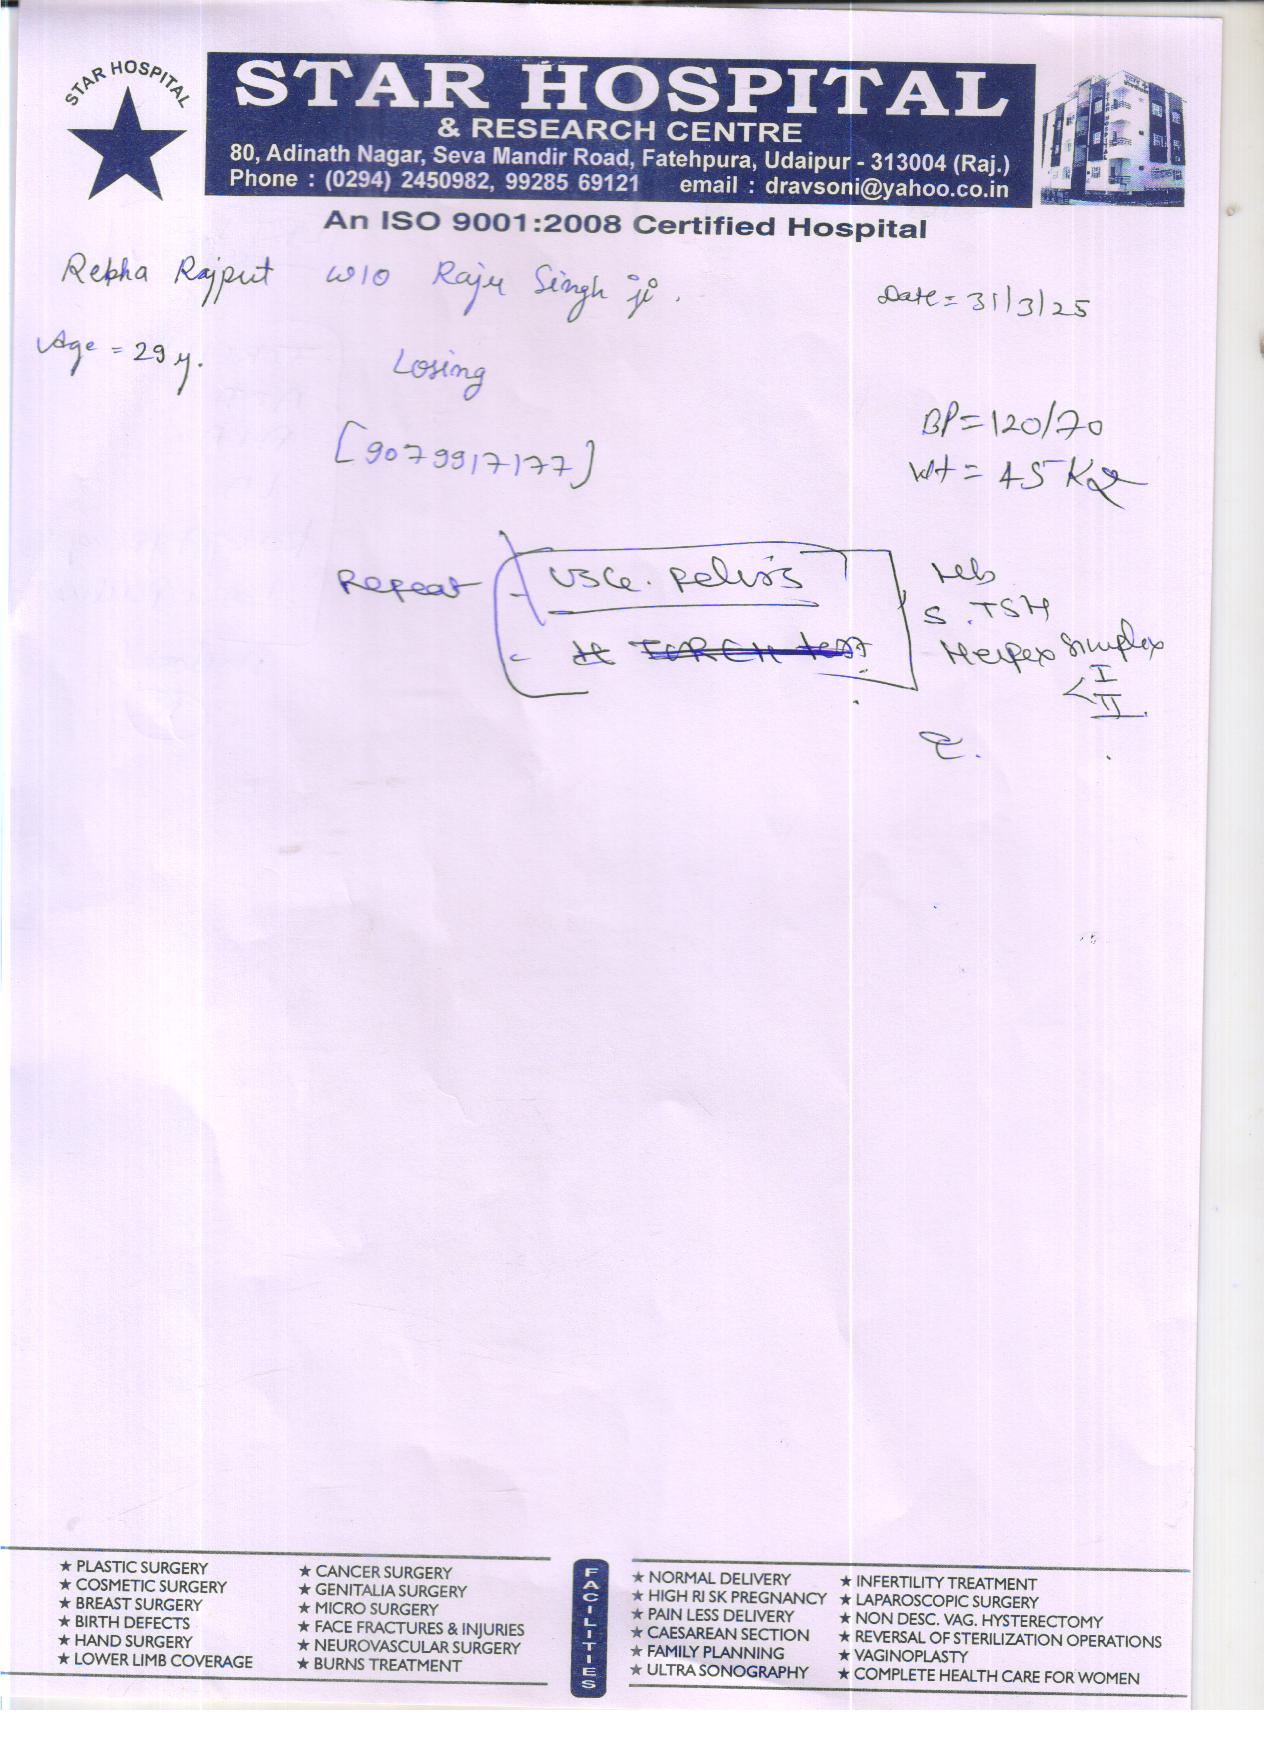 STAR HOSPITAL
STAR HOSPITAL
& RESEARCH CENTRE
80, Adinath Nagar, Seva Mandir Road, Fatehpura, Udaipur - 313004 (Raj.)
Phone : (0294) 2450982, 99285 69121 email : dravsoni@yahoo.co.in
An ISO 9001:2008 Certified Hospital
Rekha Rajput W/O Raju Singh ji.
Date = 31/3/25
Age = 29 y.
Losing
[9079917177]
BP = 120/70
Wt = 45 Kg
Repeat - USG. Pelvis
- TORCH test
Hb
S. TSH
Herpex Simplex
< I
II
★ PLASTIC SURGERY
★ COSMETIC SURGERY
★ BREAST SURGERY
★ BIRTH DEFECTS
★ HAND SURGERY
★ LOWER LIMB COVERAGE
★ CANCER SURGERY
★ GENITALIA SURGERY
★ MICRO SURGERY
★ FACE FRACTURES & INJURIES
★ NEUROVASCULAR SURGERY
★ BURNS TREATMENT
FACILITIES
★ NORMAL DELIVERY
★ HIGH RI SK PREGNANCY
★ PAIN LESS DELIVERY
★ CAESAREAN SECTION
★ FAMILY PLANNING
★ ULTRA SONOGRAPHY
★ INFERTILITY TREATMENT
★ LAPAROSCOPIC SURGERY
★ NON DESC. VAG. HYSTERECTOMY
★ REVERSAL OF STERILIZATION OPERATIONS
★ VAGINOPLASTY
★ COMPLETE HEALTH CARE FOR WOMEN